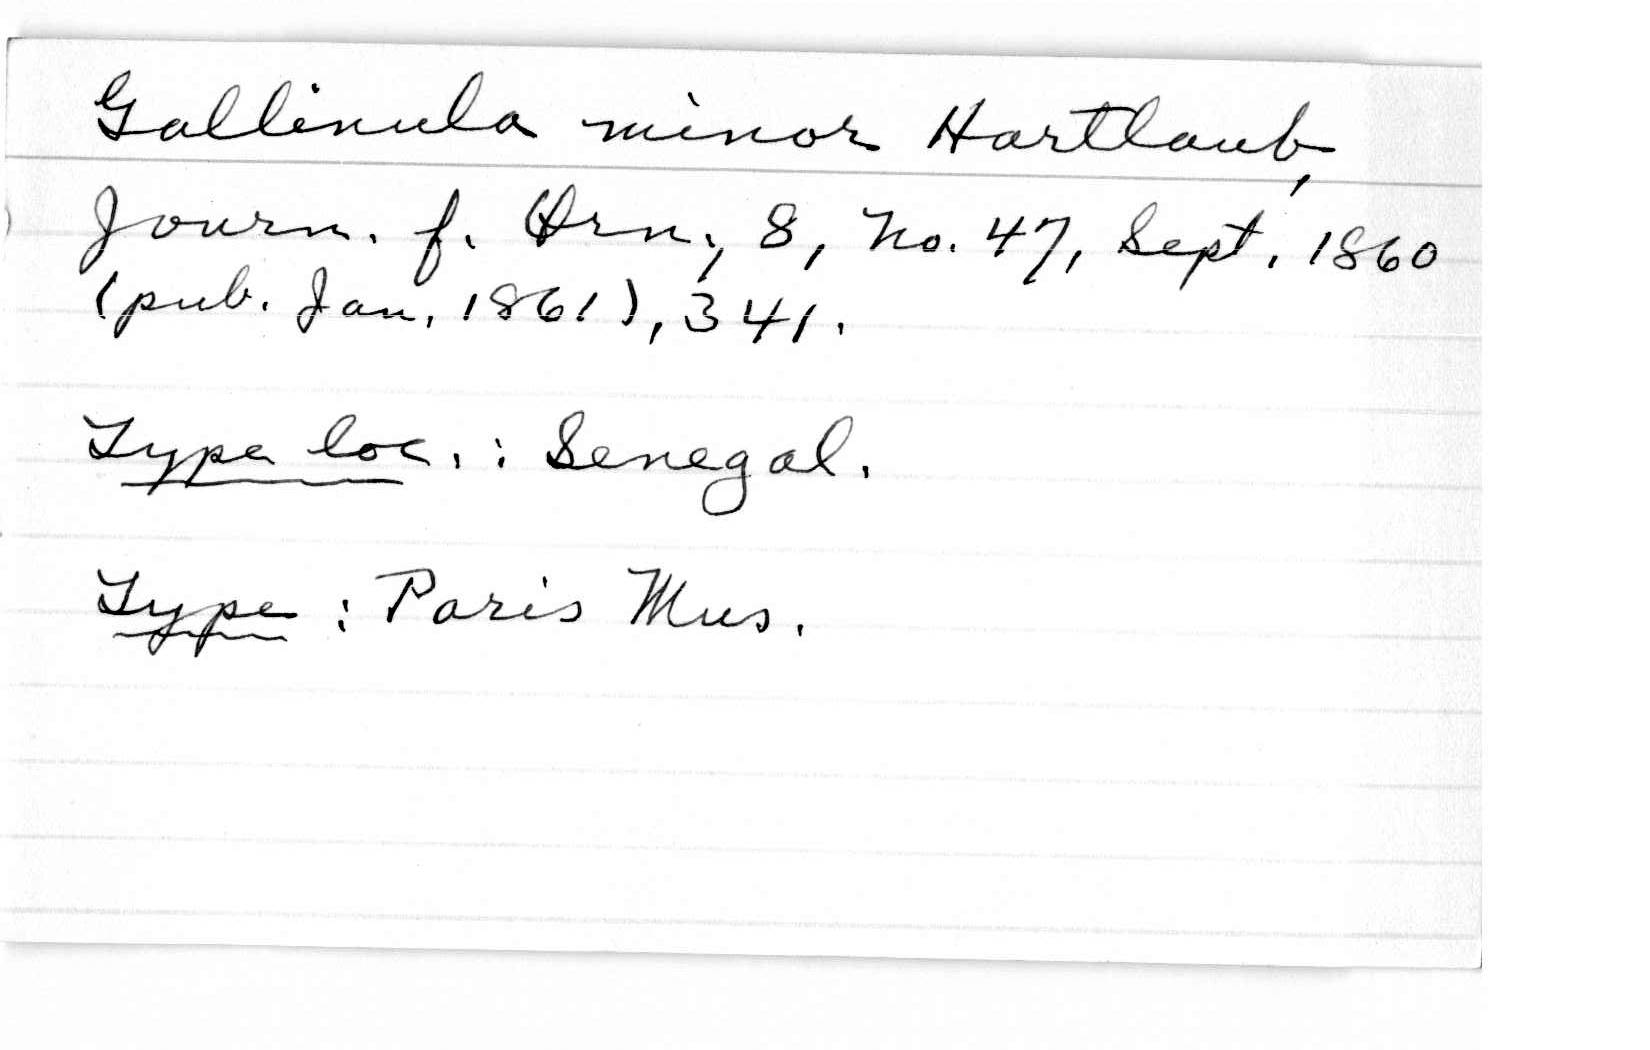 Gallinula minor Hartlaub,
Journ. f. Orn., 8, No. 47, Sept. 1860
(pub. Jan. 1861), 341.
Type loc. : Senegal.
Type : Paris Mus.